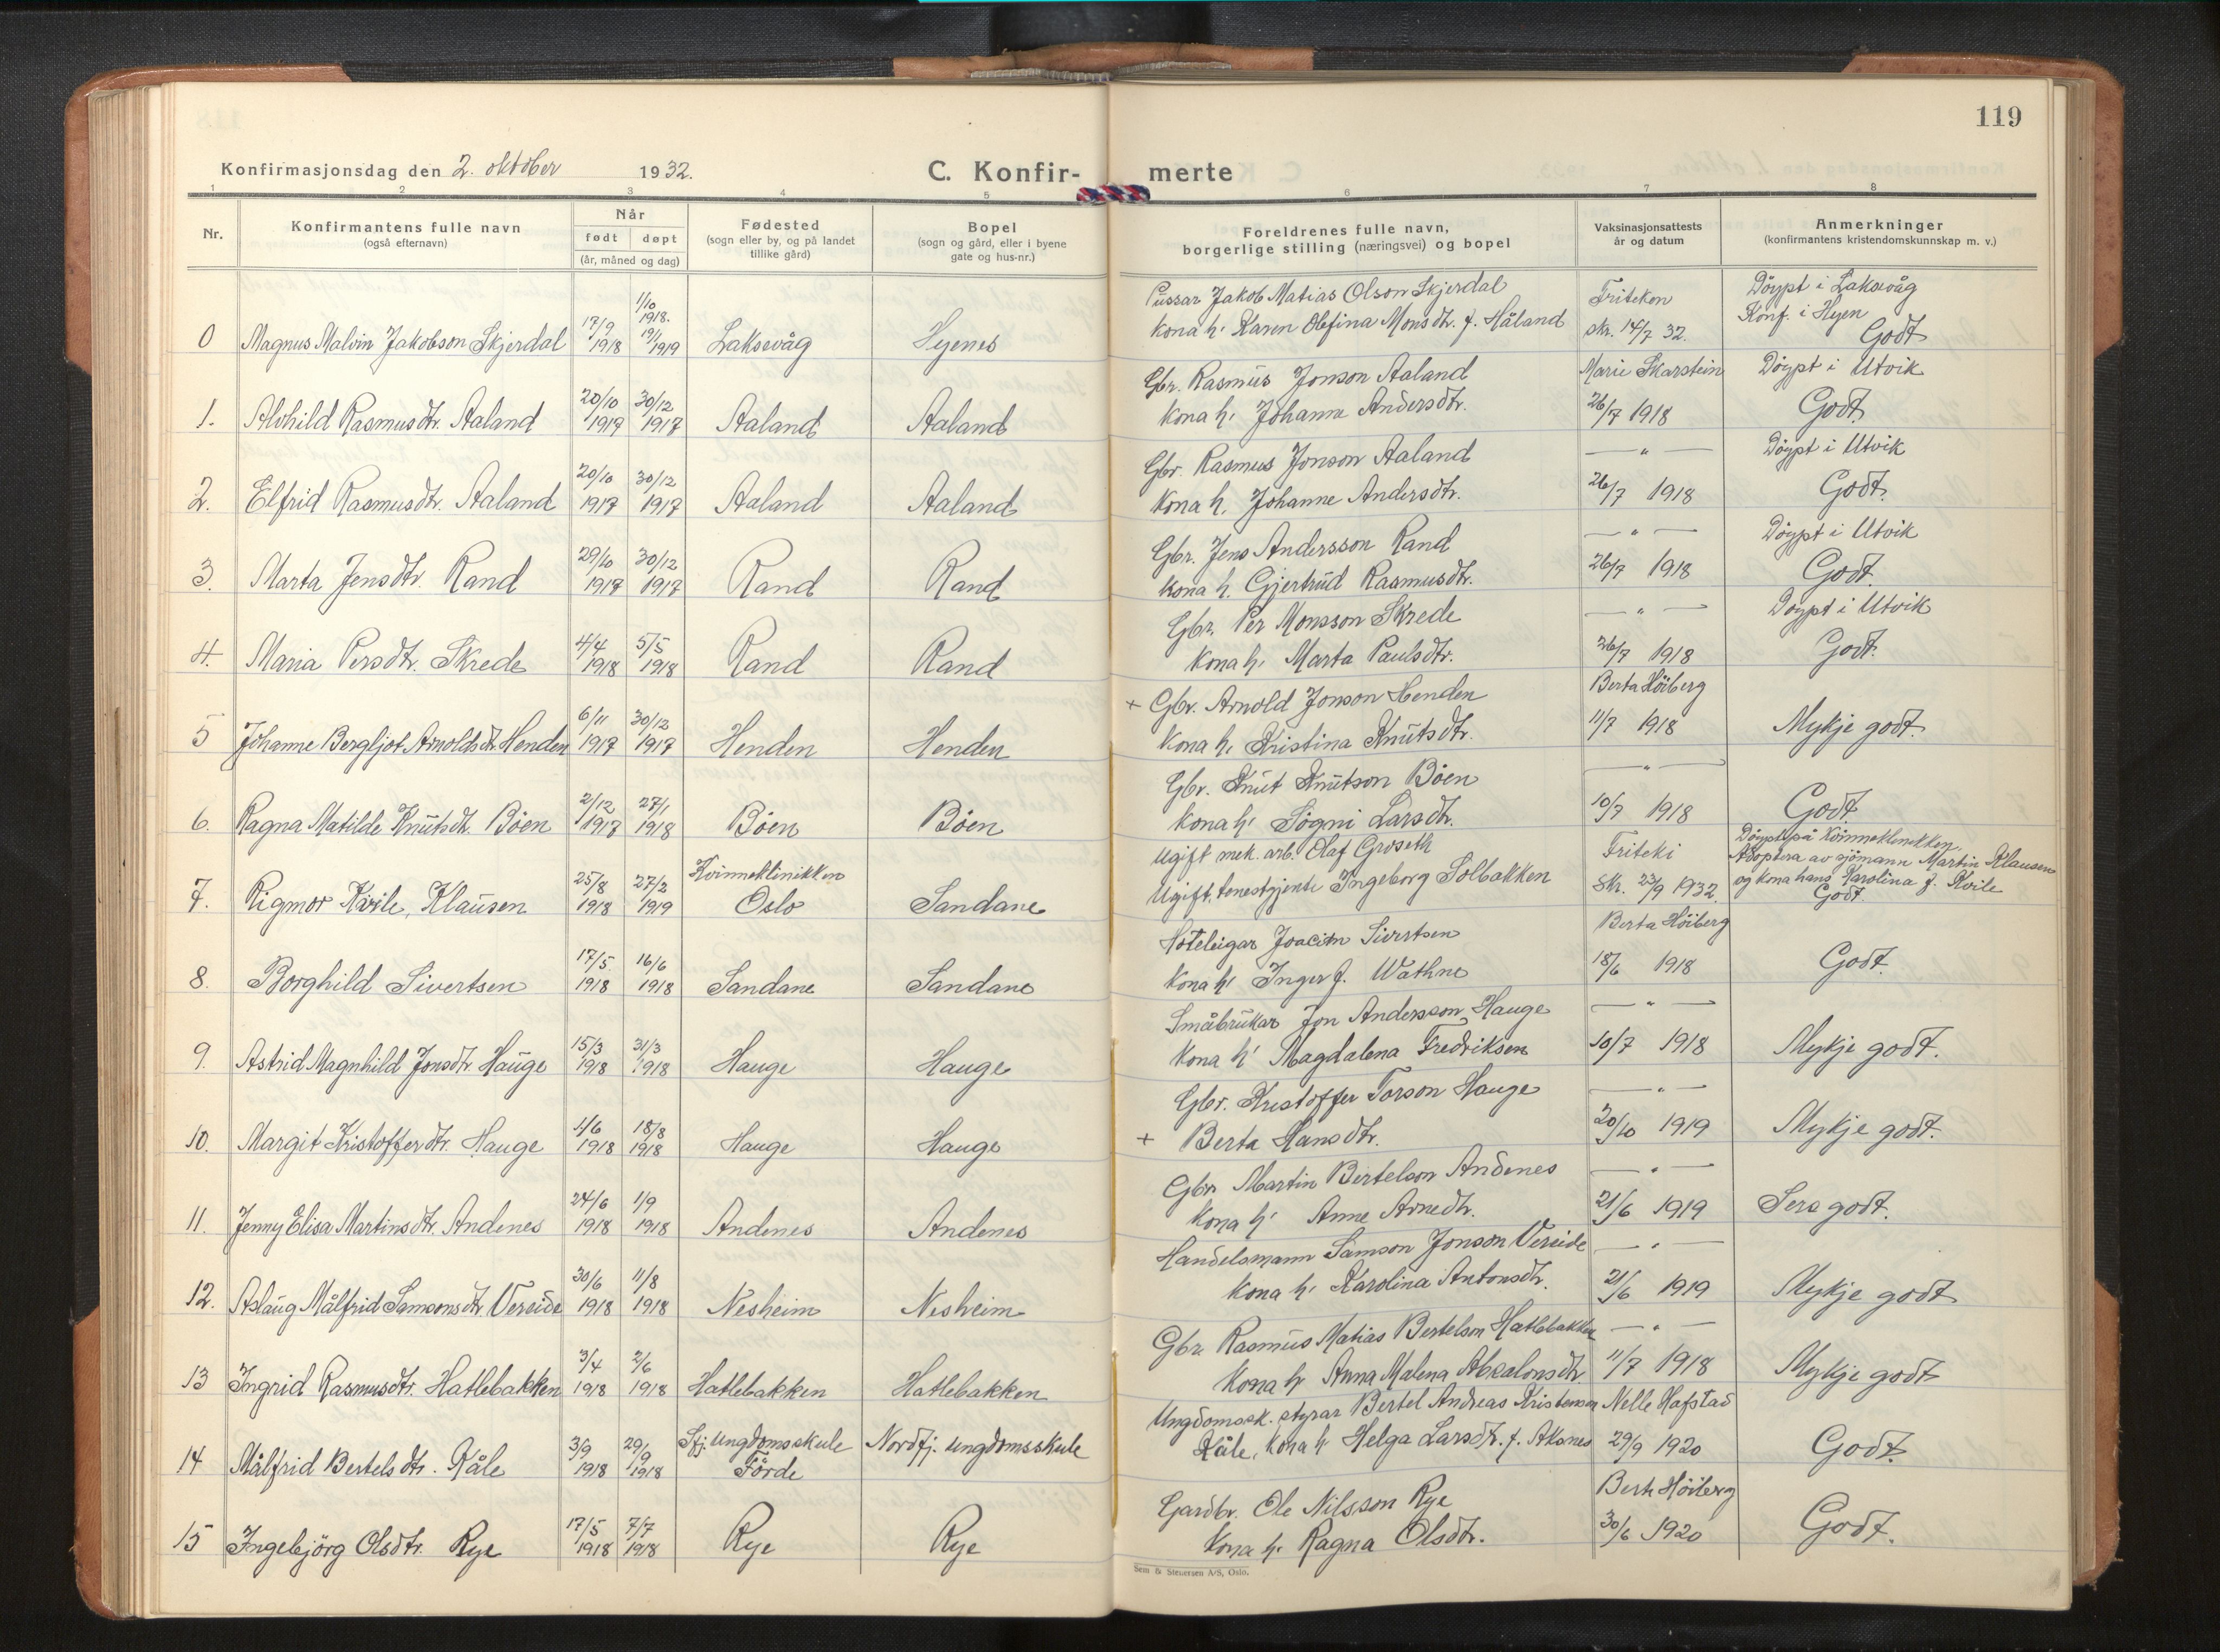 119
Konfirmasjonsdag den 2. oktober 1932. C. Konfir- merte
1 2 3 4 5 6 7 8
Nr. Konfirmantens fulle navn (også efternavn) Når født døpt (år, måned og dag) Fødested (sogn eller by, og på landet tillike gård) Bopel (sogn og gård, eller i byene gate og hus-nr.) Foreldrenes fulle navn, borgerlige stilling (næringsvei) og bopel Vaksinasjonsattests år og datum Anmerkninger (konfirmantens kristendomskunnskap m. v.)
Pussar Jakob Matias Olson Skjerdal Fritekon Döypt i Laksevåg
0 Magnus Malvin Jakobson Skjerdal 17/9 1918 1/10 1918. 19/1 1919 Laksevåg Hyenes kona h. Karen Olefina Monsdtr. f. Håland skr. 14/7 32. Konf. i Hyen Godt
Gbr. Rasmus Jonson Aaland Marie Skarstein Döypt i Utvik
1. Alvhild Rasmusdtr. Aaland 20/10 1917 30/12 1917 Aaland Aaland kona h. Johanne Andersdtr. 26/7 1918 Godt
Gbr. Rasmus Jonson Aaland — " — Döypt i Utvik
2. Elfrid Rasmusdtr. Aaland 20/10 1917 30/12 1917 Aaland Aaland kona h. Johanne Andersdtr. 26/7 1918 Godt.
Gbr. Jens Andersson Rand — " — Döypt i Utvik
3. Marta Jensdtr. Rand 29/10 1917 30/12 1917 Rand Rand kona h. Gjertrud Rasmusdtr. 26/7 1918 Godt.
Gbr. Per Monsson Skrede — " — Döypt i Utvik
4. Maria Persdtr. Skrede 4/4 1918 5/5 1918 Rand Rand kona h. Marta Paulsdtr. 26/7 1918 Godt.
+ Gbr. Arnold Jonson Henden Berta Höiberg
5 Johanne Bergljot Arnoldsdtr. Henden 6/11 1917 30/12 1917 Henden Henden kona h. Kristina Knutsdtr. 11/7 1918 Mykje godt.
Gbr. Knut Knutson Böen — " —
6. Ragna Matilde Knutsdtr. Böen 2/12 1917 27/1 1918 Böen Böen kona h. Sögni Larsdtr. 10/7 1918 Godt.
Ugift mek. arb. Olaf Groseth Friteki Döypt på Kvinneklinikken.
7. Rigmor Kvile, Klausen 25/8 1918 27/2 1919 Kvinneklinikken Oslo Sandane Ugift tenestgjente Ingeborg Solbakken Skr. 23/9 1932. Adoptera av sjömann Martin Klausen
og kona hans Karolina f. Kvile
Godt.
Hoteleigar Joacim Sivertsen Berta Höiberg
8. Borghild Sivertsen 17/5 1918 16/6 1918 Sandane Sandane kona h. Inger f. Wathne 18/6 1918 Godt.
Småbrukar Jon Andersson Hauge — " —
9. Astrid Magnhild Jonsdtr. Hauge 15/3 1918 31/3 1918 Hauge Hauge kona h. Magdalena Fredriksen 10/7 1918 Mykje godt.
Gbr. Kristoffer Torson Hauge — " —
10. Margit Kristofferdtr. Hauge 1/6 1918 18/8 1918 Hauge Hauge + Berta Hansdtr. 20/10 1919 Mykje godt.
Gbr. Martin Bertelson Andenes — " —
11. Jenny Elisa Martinsdtr. Andenes 24/6 1918 1/9 1918 Andenes Andenes kona h. Anne Arnedtr. 21/6 1919 Sers godt.
Handelsmann Samson Jonson Vereide — " —
12. Aslaug Målfrid Samsonsdtr. Vereide 30/6 1918 11/8 1918 Nesheim Nesheim kona h. Karolina Antonsdtr. 21/6 1919 Mykje godt
Gbr. Rasmus Matias Bertelson Hatlebakken — " —
13 Ingrid Rasmusdtr. Hatlebakken 3/4 1918 2/6 1918 Hatlebakken Hatlebakken kona h Anna Malena Absalonsdtr. 11/7 1918 Mykje godt
Ungdomssk. styrar Bertel Andreas Kristensen Nelle Hafstad
14 Målfrid Bertelsdtr. Kåle 3/9 1918 29/9 1918 Sfj. Ungdomsskule Förde Nordfj. ungdomsskule Kåle, kona h Helga Larsdtr. f. Aksnes 29/9 1920 Godt.
Gardbr. Ole Nilsson Rye Berta Höiberg
15 Ingebjörg Olsdtr. Rye 17/5 1918 7/7 1918 Rye Rye kona h. Ragna Olsdtr. 30/6 1920 Godt.
Sem & Stenersen A/S, Oslo.